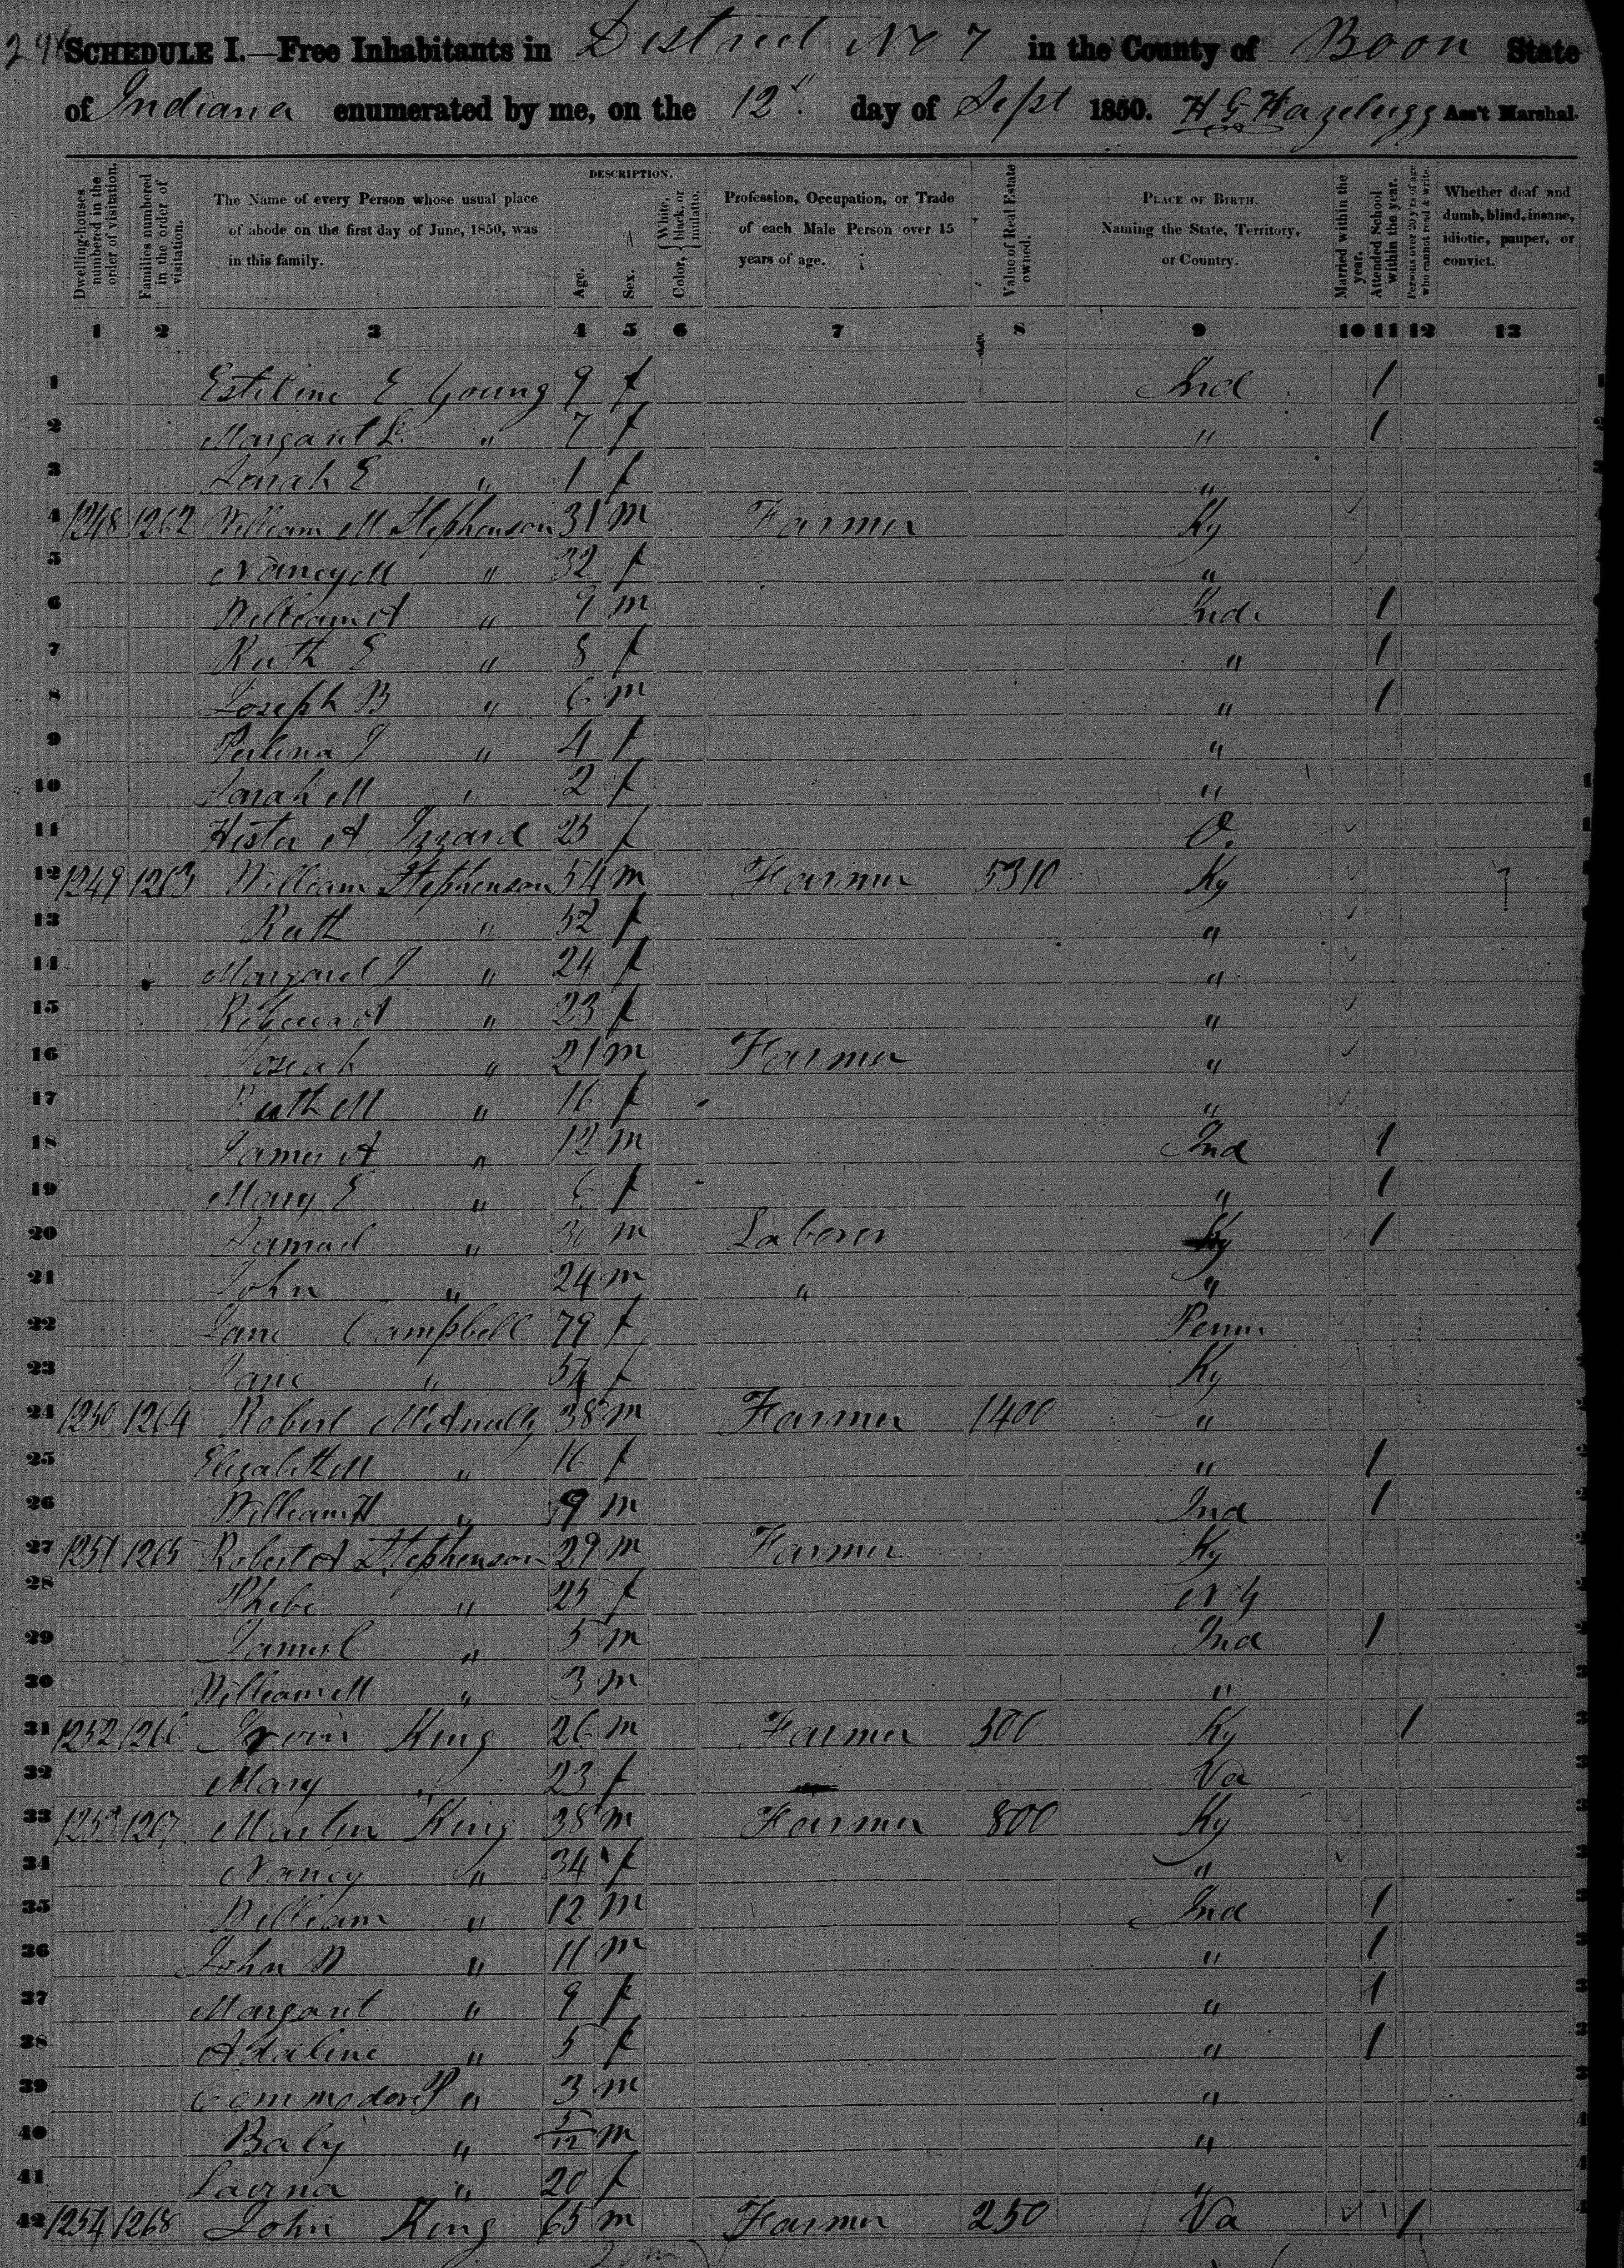 SCHEDULE I.—Free Inhabitants in District No 7 in the County of Boon State
of Indiana enumerated by me, on the 12" day of Sept 1850. H G Hazelrigg Ass't Marshal.
Dwelling-houses numbered in the order of visitation.
Families numbered in the order of visitation.
The Name of every Person whose usual place of abode on the first day of June, 1850, was in this family.
DESCRIPTION.
Age.
Sex.
Color, { White, black, or mulatto.
Profession, Occupation, or Trade of each Male Person over 15 years of age.
Value of Real Estate owned.
PLACE OF BIRTH. Naming the State, Territory, or Country.
Married within the year.
Attended School within the year.
Persons over 20 y'rs of age who cannot read & write.
Whether deaf and dumb, blind, insane, idiotic, pauper, or convict.
1 2 3 4 5 6 7 8 9 10 11 12 13
1 Estiline E Young 9 f Ind 1
2 Margaret L. " 7 f " 1
3 Sarah E " 1 f "
4 1248 1262 William M Stephenson 31 m Farmer Ky
5 Nancy M " 32 f "
6 William A " 9 m Ind. 1
7 Ruth E " 8 f " 1
8 Joseph B " 6 m " 1
9 Perlina J " 4 f "
10 Sarah M " 2 f "
11 Hester A Izzard 25 f O.
12 1249 1263 William Stephenson 54 m Farmer 5310 Ky
13 Ruth " 52 f "
14 Margaret J " 24 f "
15 Rebecca A " 23 f "
16 Josiah " 21 m Farmer "
17 Ruth M " 16 f "
18 James A " 12 m Ind 1
19 Mary E " 6 f " 1
20 Samuel " 30 m Laborer Ky 1
21 John " 24 m " "
22 Jane Campbell 79 f Penn.
23 Jane " 54 f Ky
24 1250 1264 Robert McAnully 38 m Farmer 1400 "
25 Elizabeth M " 16 f " 1
26 William H " 9 m Ind 1
27 1251 1265 Robert A Stephenson 29 m Farmer Ky
28 Phebe " 25 f N Y
29 James C " 5 m Ind 1
30 William M " 3 m "
31 1252 1266 Irvin King 26 m Farmer 500 Ky 1
32 Mary " 23 f Va
33 1253 1267 Martin King 38 m Farmer 800 Ky
34 Nancy " 34 f "
35 William " 12 m Ind 1
36 John W " 11 m " 1
37 Margaret " 9 f " 1
38 Adaline " 5 f " 1
39 Commodore P " 3 m "
40 Baby " 5/12 m "
41 Lavina " 20 f "
42 1254 1268 John King 65 m Farmer 250 Va 1